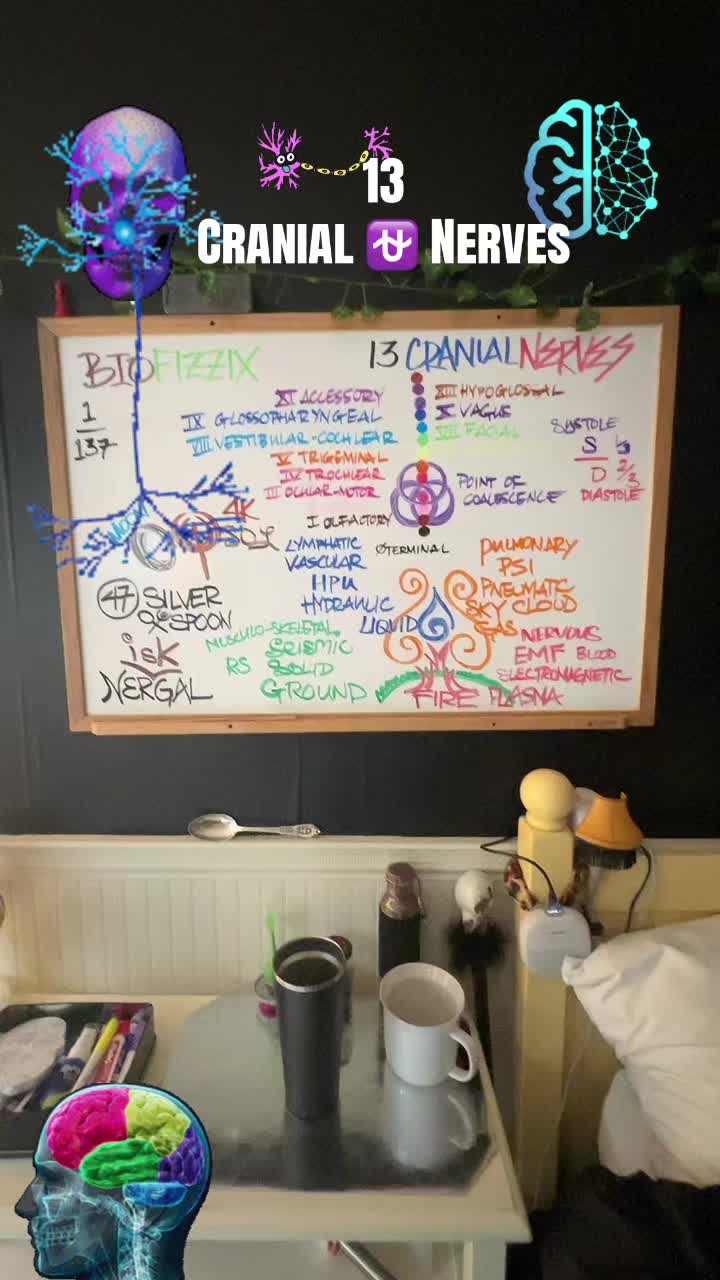 13
CRANIAL ⛎ NERVES
BIOFIZZIX
13 CRANIAL NERVES
1
137
XI ACCESSORY
IX GLOSSOPHARYNGEAL
VIII VESTIBULAR-COCHLEAR
V TRIGEMINAL
IV TROCHLEAR
III OCULAR-MOTOR
I OLFACTORY
XII HYPOGLOSSAL
X VAGUS
VII FACIAL
POINT OF
COALESCENCE
ØTERMINAL
SYSTOLE
S
D 2/3
DIASTOLE
4K
47 SILVER
SPOON
isK
NERGAL
LYMPHATIC
VASCULAR
HPU
HYDRAULIC
LIQUID
MUSCULO-SKELETAL
SEISMIC
RS SOLID
GROUND
PULMONARY
PSI
PNEUMATIC
SKY CLOUD
GAS
NERVOUS
EMF BLOOD
ELECTROMAGNETIC
FIRE PLASMA